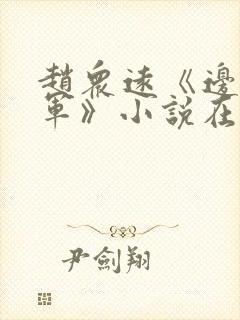 趙眾遠《邊
軍》小說在
尹劍翔